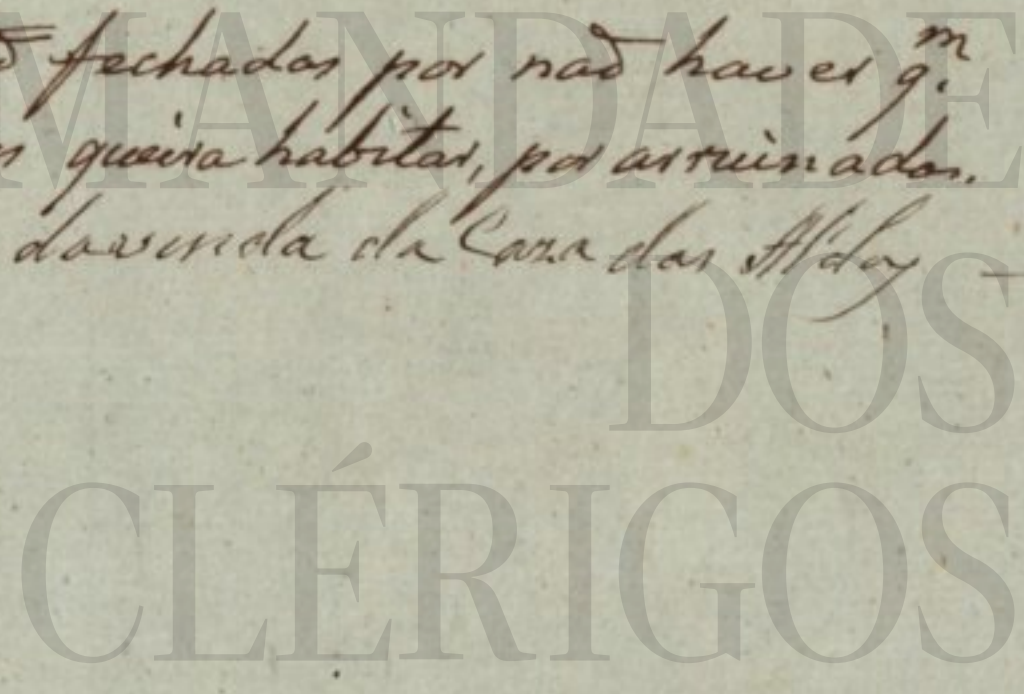 fechadas por naõ haver q.^m
queira habitar, por arruinadas.
da venda da Caza das Aldas
MANDADE
DOS
CLÉRIGOS